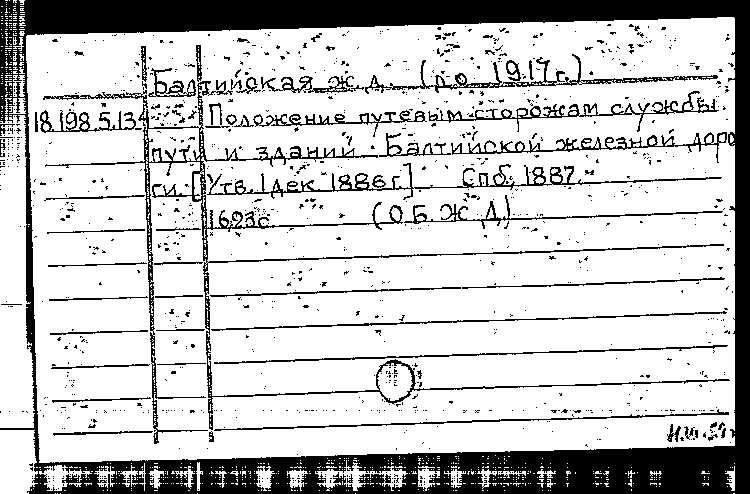 Балтийская ж.д. (до 1917г.).
18.198.5.134 Положение путевым сторожам службы
пути и зданий Балтийской железной доро
ги. [Утв. 1 дек 1886г.]. Спб, 1887.-
(О.Б.Ж.Д)